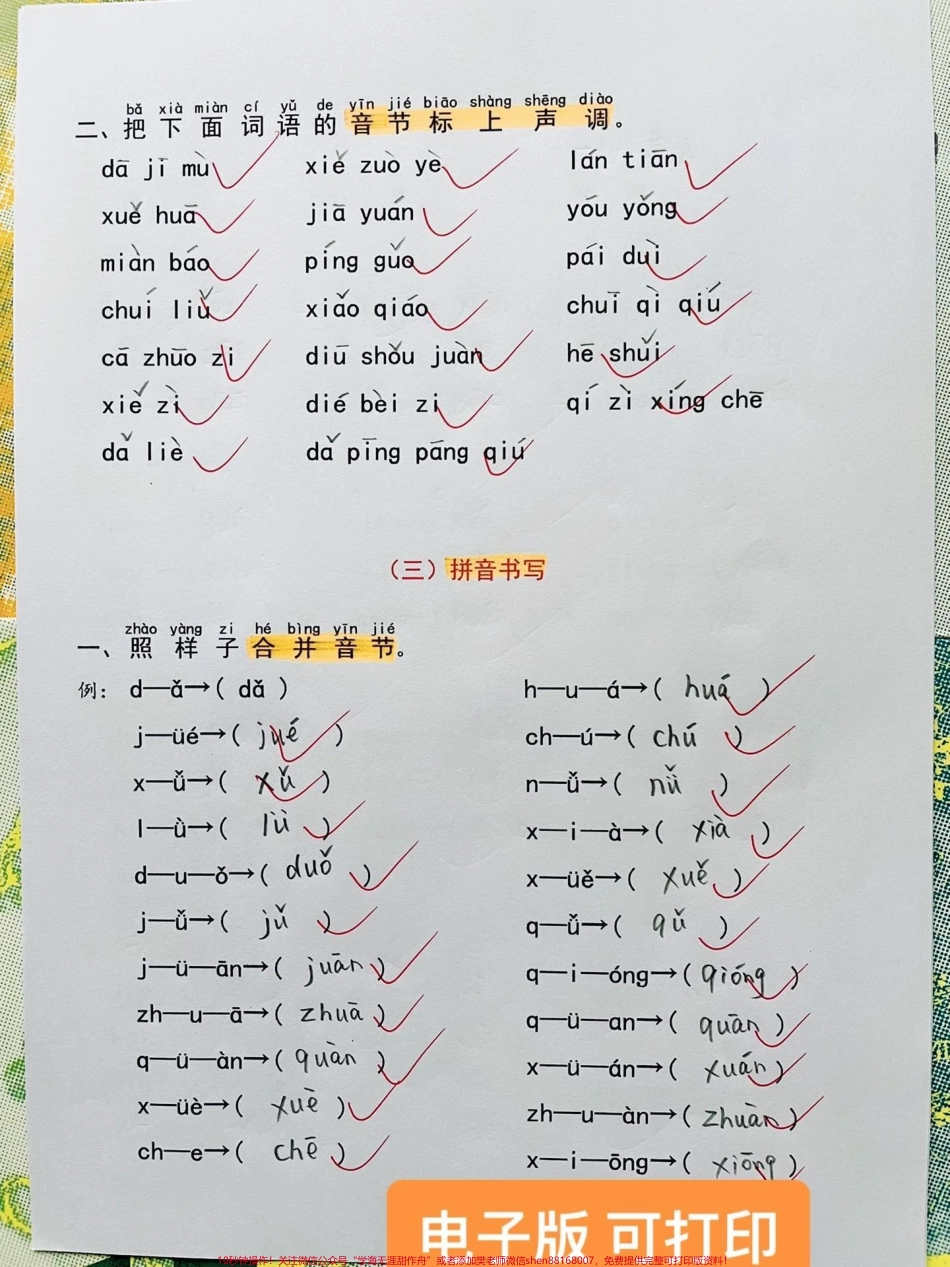 bǎ xià miàn cí yǔ de yīn jié biāo shàng shēng diào
二、把下面词语的音节标上声调。
dā jī mù xiě zuò yè lán tiān
xuě huā jiā yuán yóu yǒng
miàn báo píng guǒ pái duì
chuí liǔ xiǎo qiáo chuī qì qiú
cā zhuō zi diū shǒu juàn hē shuǐ
xiě zì dié bèi zi qí zì xíng chē
dǎ liè dǎ pīng pāng qiú
（三）拼音书写
zhào yàng zi hé bìng yīn jié
一、照样子合并音节。
例：d—ǎ→( dǎ ) h—u—á→( huá )
j—üé→( jué ) ch—ú→( chú )
x—ǚ→( xǔ ) n—ǚ→( nǚ )
l—ǜ→( lǜ ) x—i—à→( xià )
d—u—ǒ→( duǒ ) x—üě→( xuě )
j—ǚ→( jǔ ) q—ǚ→( qǔ )
j—ü—ān→( juān ) q—i—óng→( qióng )
zh—u—ā→( zhuā ) q—ü—an→( quān )
q—ü—àn→( quàn ) x—ü—án→( xuán )
x—üè→( xuè ) zh—u—àn→( zhuàn )
ch—e→( chē ) x—i—ōng→( xiōng )
电子版 可打印
10秒钟操作！关注微信公众号“学海无涯甜作舟”或者添加樊老师微信shen88168007，免费提供完整可打印版资料！